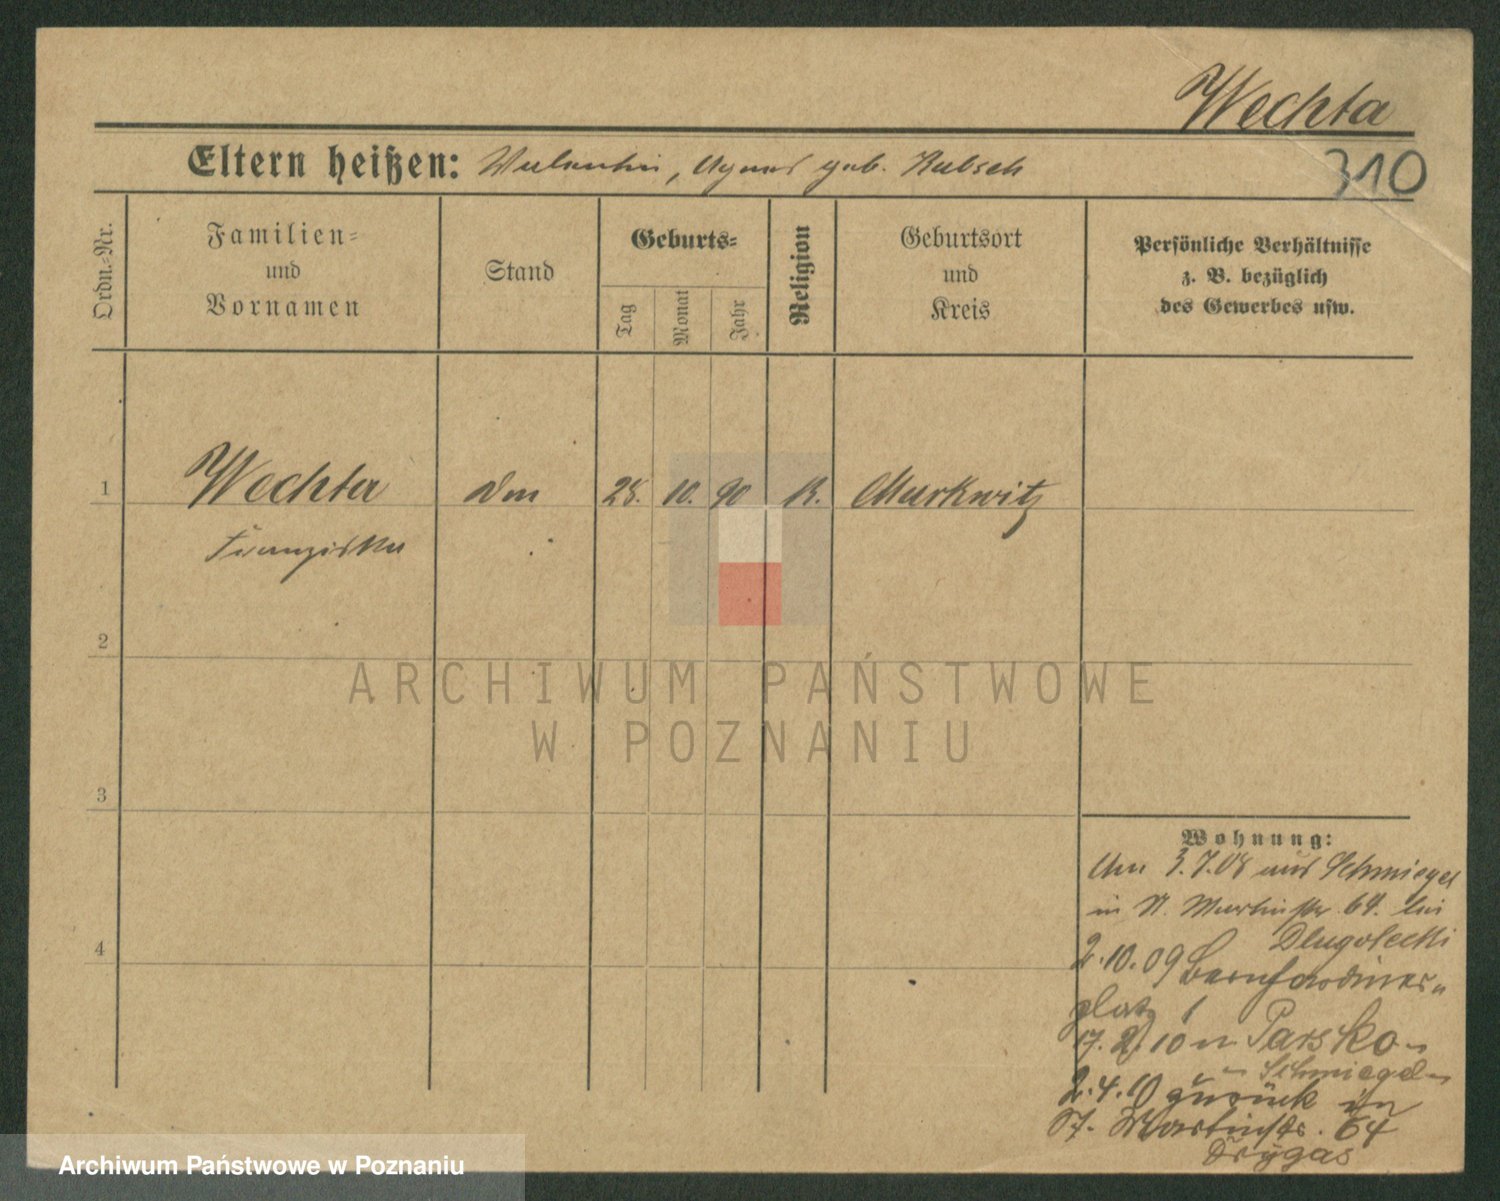 Wechta
Eltern heißen: Valentin, Agnes geb. Kubsch
310
Ordn.-Nr.
Familien-
und
Vornamen
Stand
Geburts-
Tag
Monat
Jahr
Religion
Geburtsort
und
Kreis
Persönliche Verhältnisse
z. B. bezüglich
des Gewerbes usw.
1 Wechta 10. 90 K. Murkwitz
Franziska
2
3
4
ARCHIWUM PAŃSTWOWE
W POZNANIU
Wohnung:
Am 3.7.08 aus Schmiegel
in St. Martinstr. 64. bei
Dlugolecki
2.10.09 Bernhardiner-
platz 1
17. 2. 10 n Parsko
Schmiegel
2.4.10 zurück in
St. Martinstr. 64
Drygas
Archiwum Państwowe w Poznaniu